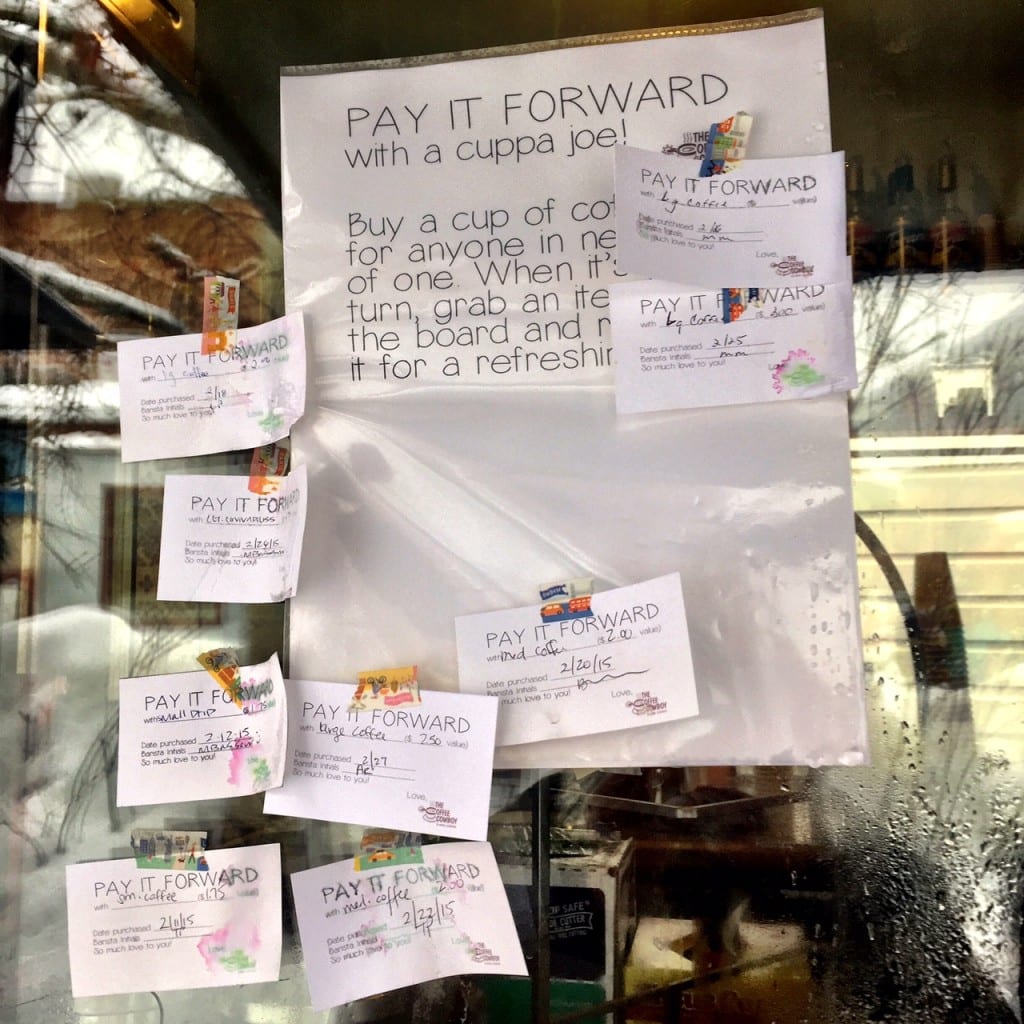 PAY IT FORWARD
with a cuppa joe!
Buy a cup of
for anyone in
of one. When it's
turn, grab an
the board and
it for a
THE
PAY IT FORWARD
with Lg coffee value)
Date purchased 2/26
Barista Initials mm
So much love to you!
Love,
THE COFFEE COWBOY
with Lg ($ 3.00 value)
Date purchased 2/25
Barista Initials mm
So much love to you!
PAY IT FORWARD
with lg coffee
Date purchased 2/18
Barista Initials
So much love to you!
PAY IT
with
Date purchased 2/24/15
Barista Initials
So much love to you!
PAY IT FORWARD
with med coffee ($ 2.00 value)
Date purchased 2/20/15
Barista Initials
So much love to you!
Love,
THE COFFEE COWBOY
PAY IT FORWARD
with small Drip 1.75
Date purchased 2.12.15
Barista Initials
So much love to you!
PAY IT FORWARD
with large coffee ($ 2.50 value)
Date purchased 2/27
Barista Initials
So much love to you!
Love,
THE COFFEE COWBOY
PAY IT FORWARD
with sm. coffee ($ 1.75 value)
Date purchased 2/11/15
Barista Initials
So much love to you!
PAY IT FORWARD
with med. coffee 2.00 value)
Date purchased 2/23/15
Barista Initials
So much love to you!
SAFE
CUTTER